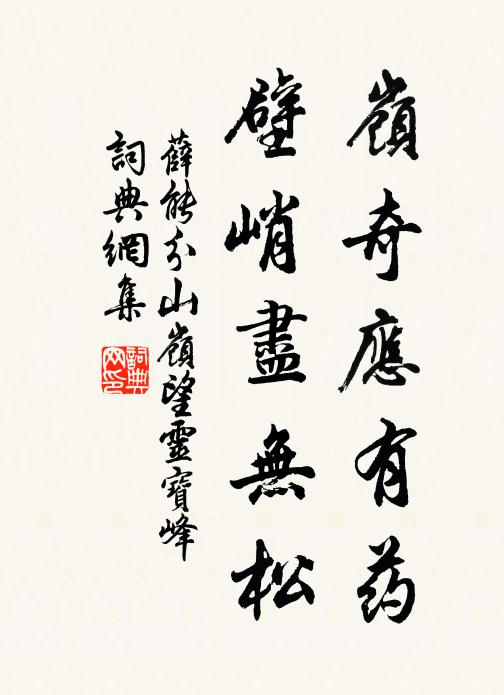 嶺奇應有药
壁峭盡無松
薛能分山嶺望靈寶峰
詞典網集
詞典网印